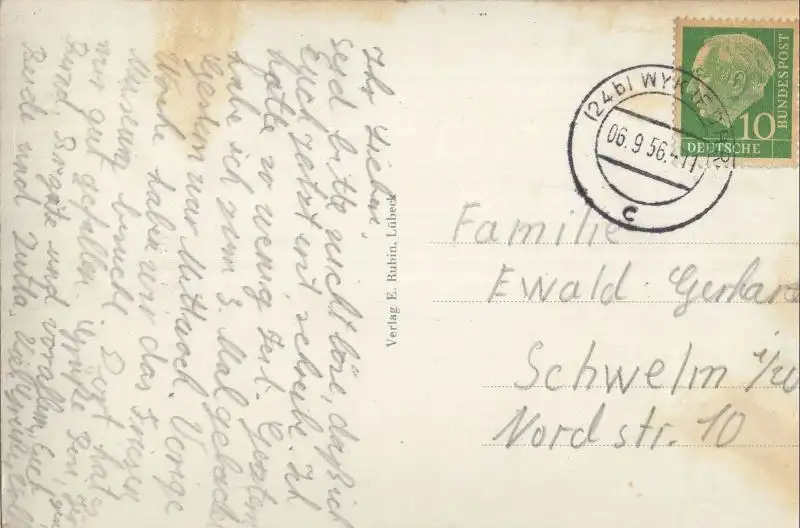 Ihr Lieben,
seid bitte nicht böse, daß ich
Euch jetzt erst schreibe. Ich
hatte so wenig Zeit. Gestern
habe ich zum 3. Mal gebadet
Gestern war Mittwoch. Vorige
Woche haben wir das Friesen
Museum besucht. Dort hat es
mir gut gefallen. Grüße
und vor allem Euch
Beide und Jutta. Viele
Verlag E. Rubin, Lübeck
(24b) WYK (FÖHR)
06.9.56.-11
c
DEUTSCHE
BUNDESPOST
10
Familie
Ewald Gerhard
Schwelm i/W
Nordstr. 10